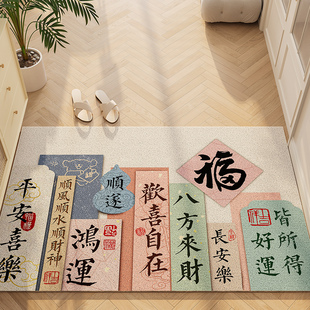 平安喜樂
順風順水順財神
鴻運
順遂
歡喜自在
八方來財
福
長安樂
好運
皆所得